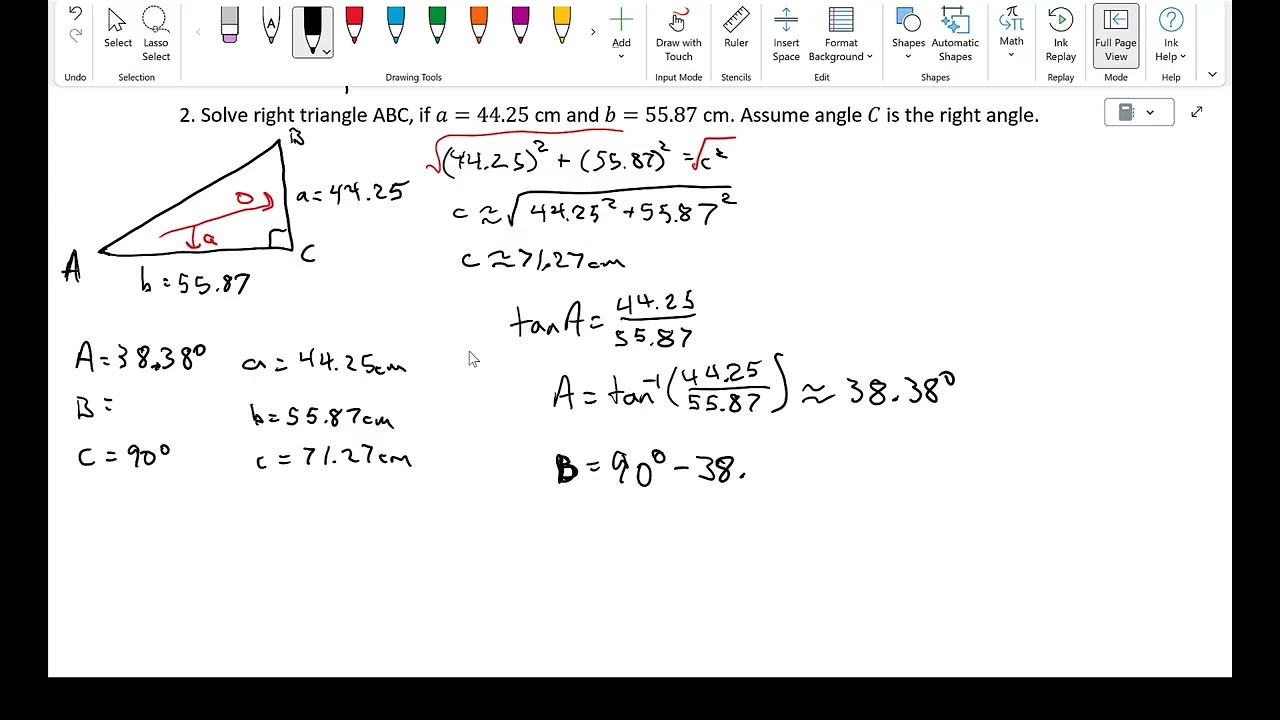 Undo
Select
Lasso Select
Selection
A
Drawing Tools
Add
Draw with Touch
Input Mode
Ruler
Stencils
Insert Space
Format Background
Edit
Shapes
Automatic Shapes
Shapes
Math
Ink Replay
Replay
Full Page View
Mode
Ink Help
Help
2. Solve right triangle ABC, if a = 44.25 cm and b = 55.87 cm. Assume angle C is the right angle.
B
√(44.25)² + (55.87)² = √c²
o
a = 44.25
c ≈ √44.25² + 55.87²
a
A
C
b = 55.87
c ≈ 71.27 cm
tan A = 44.25/55.87
A = 38.38° a = 44.25 cm
A = tan⁻¹(44.25/55.87) ≈ 38.38°
B = b = 55.87 cm
C = 90° c = 71.27 cm
B = 90° - 38.